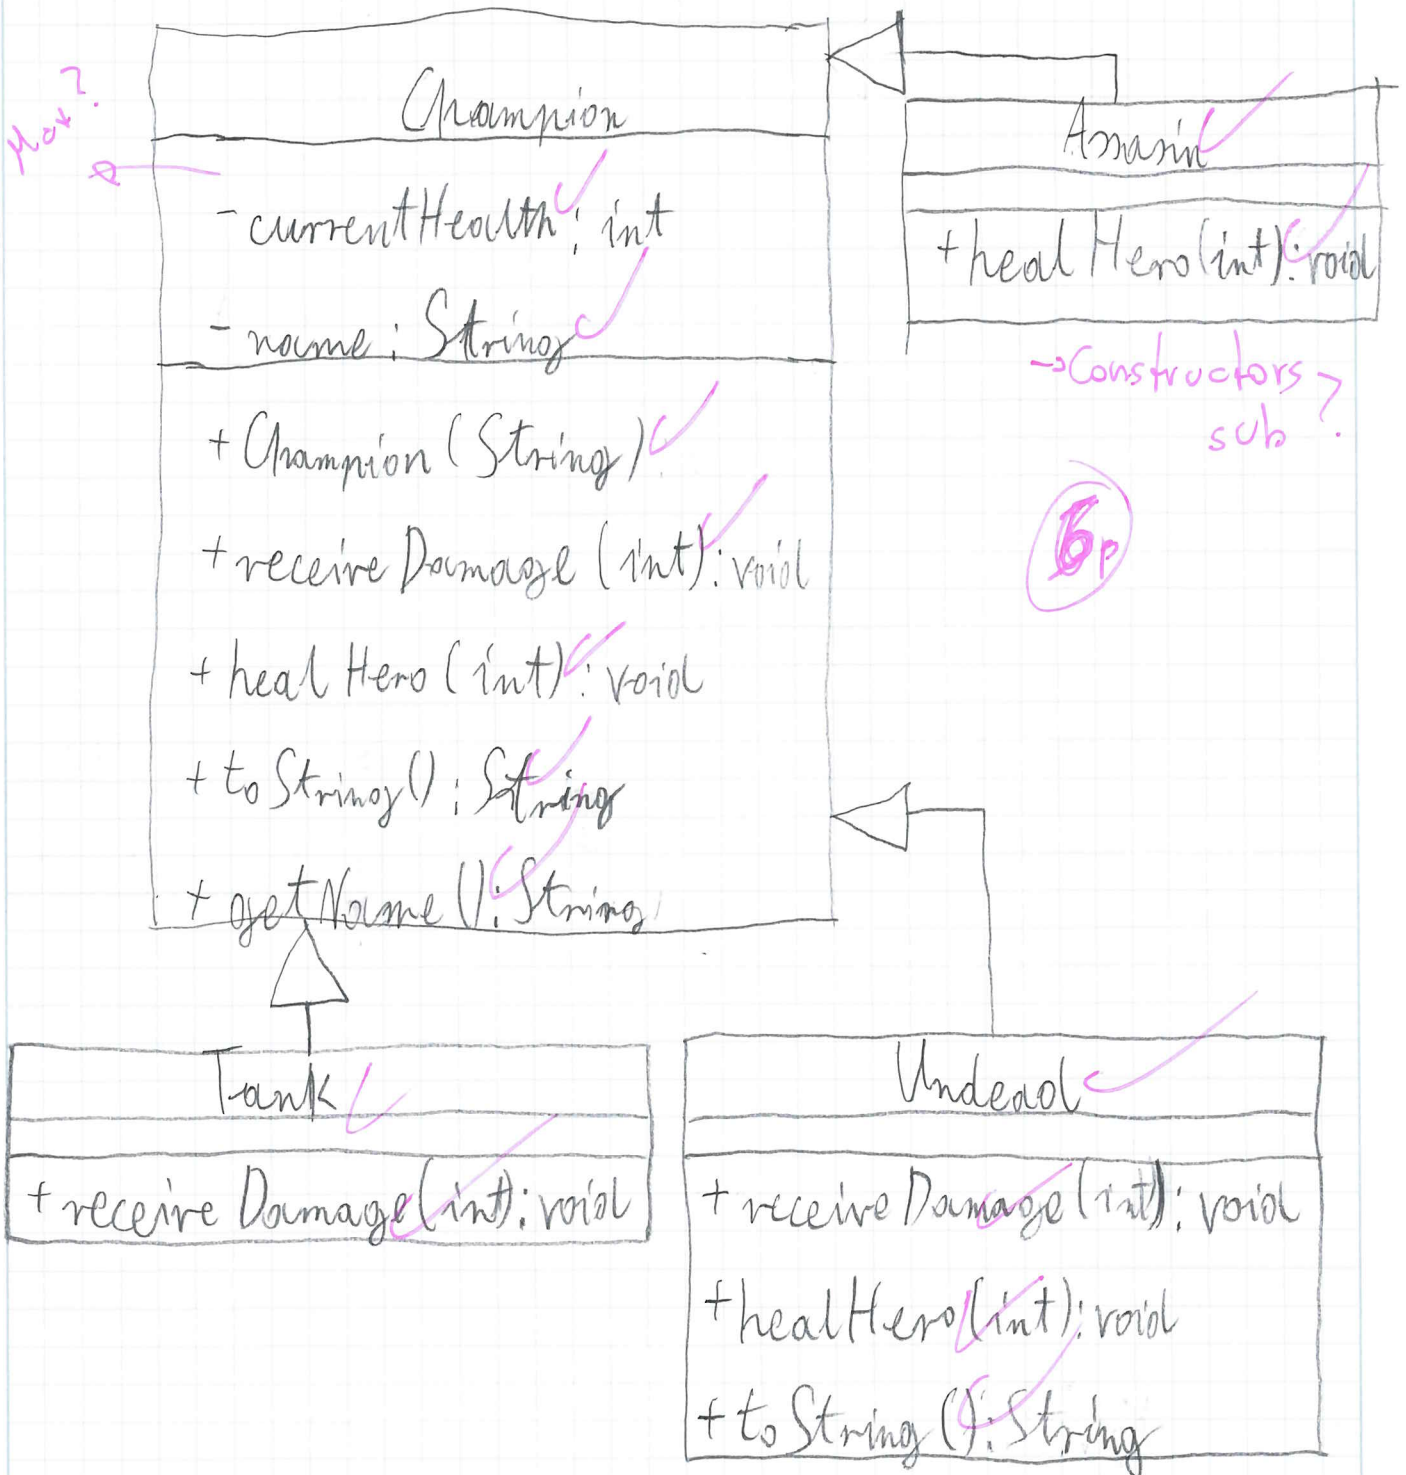 Champion
Max?
- currentHealth : int
- name : String
+ Champion (String)
+ receiveDamage (int) : void
+ healHero (int) : void
+ toString() : String
+ getName () : String
Assasin
+ healHero(int) : void
→ Constructors
sub ?
6p
Tank
+ receiveDamage(int) : void
Undead
+ receiveDamage (int) : void
+ healHero(int) : void
+ toString () : String